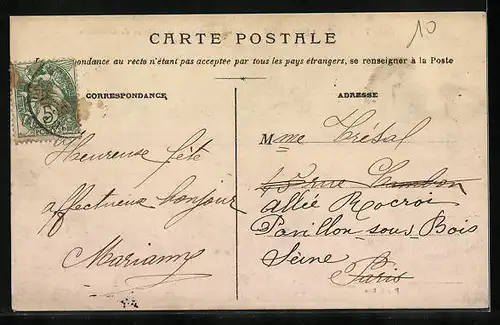 10
CARTE POSTALE
La Correspondance au recto n'étant pas acceptée par tous les pays étrangers, se renseigner à la Poste
CORRESPONDANCE
ADRESSE
5
Heureuse fête
affectueux bonjour
Marianne
Mme Trésal
45 rue Chambon
allée Rocroi
Pavillon sous Bois
Seine
Paris